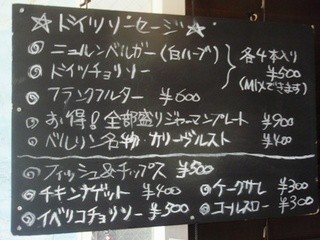 ☆ドイツソーセージ☆
◎ニュルンベルガー(白ハーブ)
◎ドイツチョリソー
各4本入り
¥500
(MIXできます)
◎フランクフルター ¥600
◎お得!全部盛りジャーマンプレート ¥900
◎ベルリン名物・カリーヴルスト ¥400
◎フィッシュ&チップス ¥500
◎チキンナゲット ¥400
◎ケークサレ ¥300
◎イベリコチョリソー ¥500
◎コールスロー ¥300